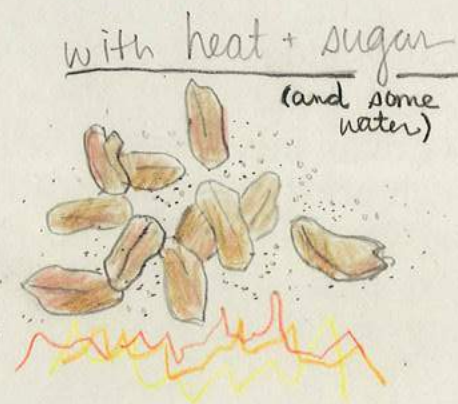 with heat + sugar
(and some
water)